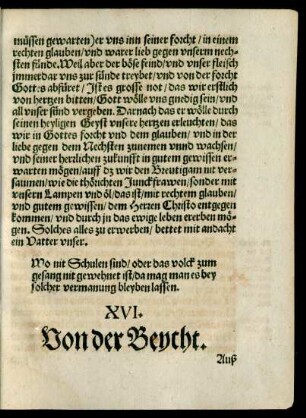 müssen gewarten) er vns inn seiner forcht / in einem
rechten glauben / vnd warer lieb gegen vnserm nech-
sten fünde. Weil aber der böse feind / vnd vnser fleisch
jmmerdar vns zur sünde treybet / vnd von der forcht
Gottes abfüret / Ist es grosse not / das wir erstlich
von hertzen bitten / Gott wölle vns gnedig sein / vnd
all vnser sünd vergeben. Darnach das er wölle durch
seinen heyligen Geyst vnsere hertzen erleuchten / das
wir in Gottes forcht vnd dem glauben / vnd in der
liebe gegen dem Nechsten zunemen vnnd wachsen /
vnd seiner herzlichen zukunfft in gutem gewissen er-
warten mögen / auff dz wir den Breutigam nit ver-
saumen / wie die thörichten Junckfrawen / sonder mit
vnsern Lampen vnd öl / das ist / mit rechtem glauben /
vnd gutem gewissen / dem Herren Christo entgegen
kommen / vnd durch jn das ewige leben ererben mö-
gen. Solches alles zu erwerben / bettet mit andacht
ein Vatter vnser.
Wo nit Schulen sind / oder das volck zum
gesang nit gewehnet ist / da mag man es bey
solcher vermanung bleyben lassen.
XVI.
Von der Beycht.
Auß